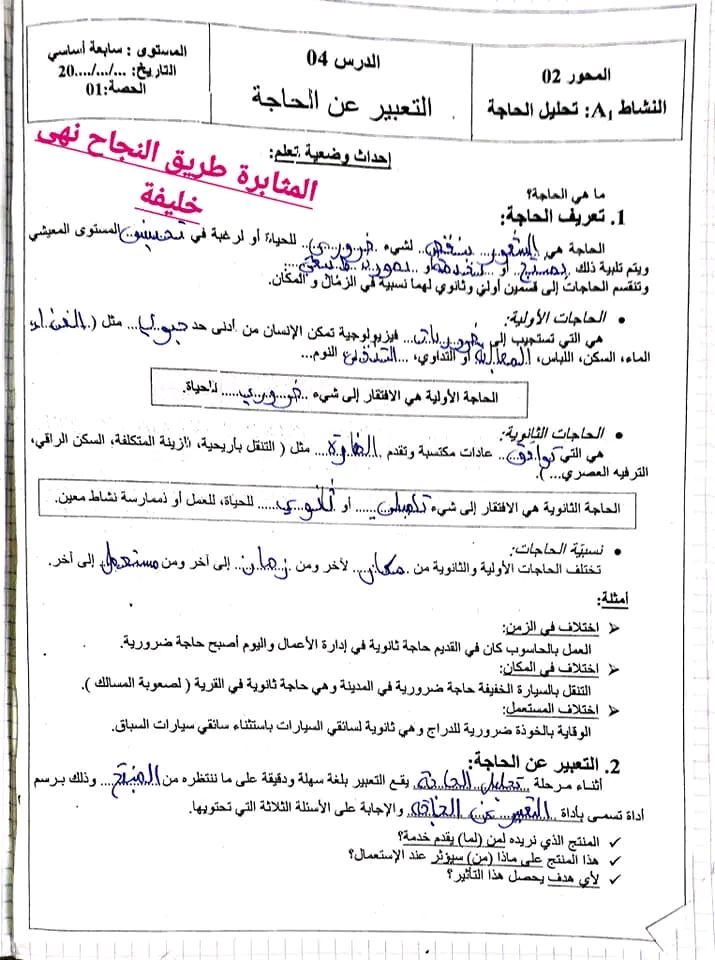 المحور 02
النشاط A1: تحليل الحاجة
الدرس 04
التعبير عن الحاجة
المستوى : سابعة أساسي
التاريخ: .../.../...20
الحصة:01
المثابرة طريق النجاح نهى
خليفة
إحداث وضعية تعلم:
ما هي الحاجة؟
1. تعريف الحاجة:
الحاجة هي الشعور بنقص لشيء ضروري للحياة أو لرغبة في تحسين المستوى المعيشي
ويتم تلبية ذلك بمنتج أو بخدمة أو
وتنقسم الحاجات إلى قسمين أولي وثانوي لهما نسبية في الزمان والمكان.
• الحاجات الأولية:
هي التي تستجيب إلى ضروريات فيزيولوجية تمكن الإنسان من أدنى حد حيوي مثل ( الغذاء،
الماء، السكن، اللباس، المعالجة أو التداوي، التدفئة، النوم...
الحاجة الأولية هي الافتقار إلى شيء ضروري للحياة.
• الحاجات الثانوية:
هي التي توافق عادات مكتسبة وتقدم الحضارة مثل ( التنقل بأريحية، الزينة المتكلفة، السكن الراقي،
الترفيه العصري... ).
الحاجة الثانوية هي الافتقار إلى شيء تكميلي أو ثانوي للحياة، للعمل أو لممارسة نشاط معين.
• نسبيّة الحاجات:
تختلف الحاجات الأولية والثانوية من مكان لآخر ومن زمان إلى آخر ومن مستعمل إلى آخر.
أمثلة:
➢ اختلاف في الزمن:
العمل بالحاسوب كان في القديم حاجة ثانوية في إدارة الأعمال واليوم أصبح حاجة ضرورية.
➢ اختلاف في المكان:
التنقل بالسيارة الخفيفة حاجة ضرورية في المدينة وهي حاجة ثانوية في القرية ( لصعوبة المسالك ).
➢ اختلاف المستعمل:
الوقاية بالخوذة ضرورية للدراج وهي ثانوية لسائقي السيارات باستثناء سائقي سيارات السباق.
2. التعبير عن الحاجة:
أثناء مرحلة تحليل الحاجة يقع التعبير بلغة سهلة ودقيقة على ما ننتظره من المنتج وذلك برسم
أداة تسمى بأداة التعبير عن الحاجة والإجابة على الأسئلة الثلاثة التي تحتويها.
✓ المنتج الذي نريده لمن (لما) يقدم خدمة؟
✓ هذا المنتج على ماذا (من) سيؤثر عند الإستعمال؟
✓ لأي هدف يحصل هذا التأثير؟